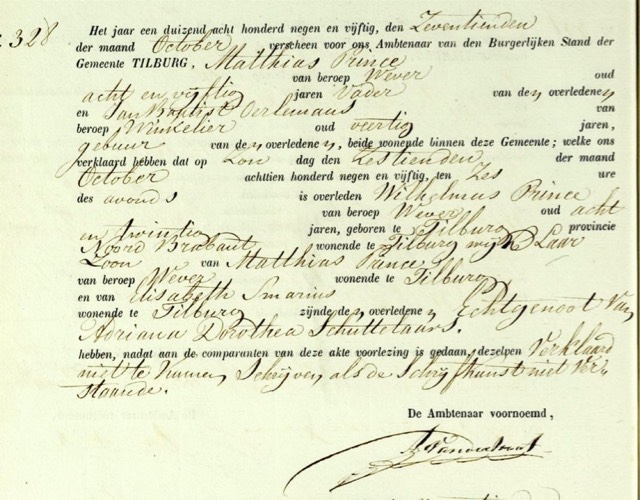 328 Het jaar een duizend acht honderd negen en vijftig, den Zeventienden
der maand October verscheen voor ons Ambtenaar van den Burgerlijken Stand der
Gemeente TILBURG, Matthias Prince
van beroep Wever oud
acht en vijftig jaren Vader van de n overledene n
en Jan Baptist Oerlemans van
beroep Winkelier oud veertig jaren,
gebuur van de n overledene n, beide wonende binnen deze Gemeente; welke ons
verklaard hebben dat op Zon dag den Zestienden der maand
October achttien honderd negen en vijftig, ten Zes ure
des avonds is overleden Wilhelmus Prince
van beroep Wever oud acht
en twintig jaren, geboren te Tilburg provincie
Noord Braband wonende te Tilburg wijk Laar
Zoon van Matthias Prince
van beroep Wever wonende te Tilburg
en van Elisabeth Smarius
wonende te Tilburg zijnde de n overledene n Echtgenoot van
Adriana Dorothea Schuttelaars.
hebben, nadat aan de comparanten van deze akte voorlezing is gedaan, dezelven Verklaard
niet te kunnen Schrijven als de Schrijfkunst niet ver=
staande.
De Ambtenaar voornoemd,